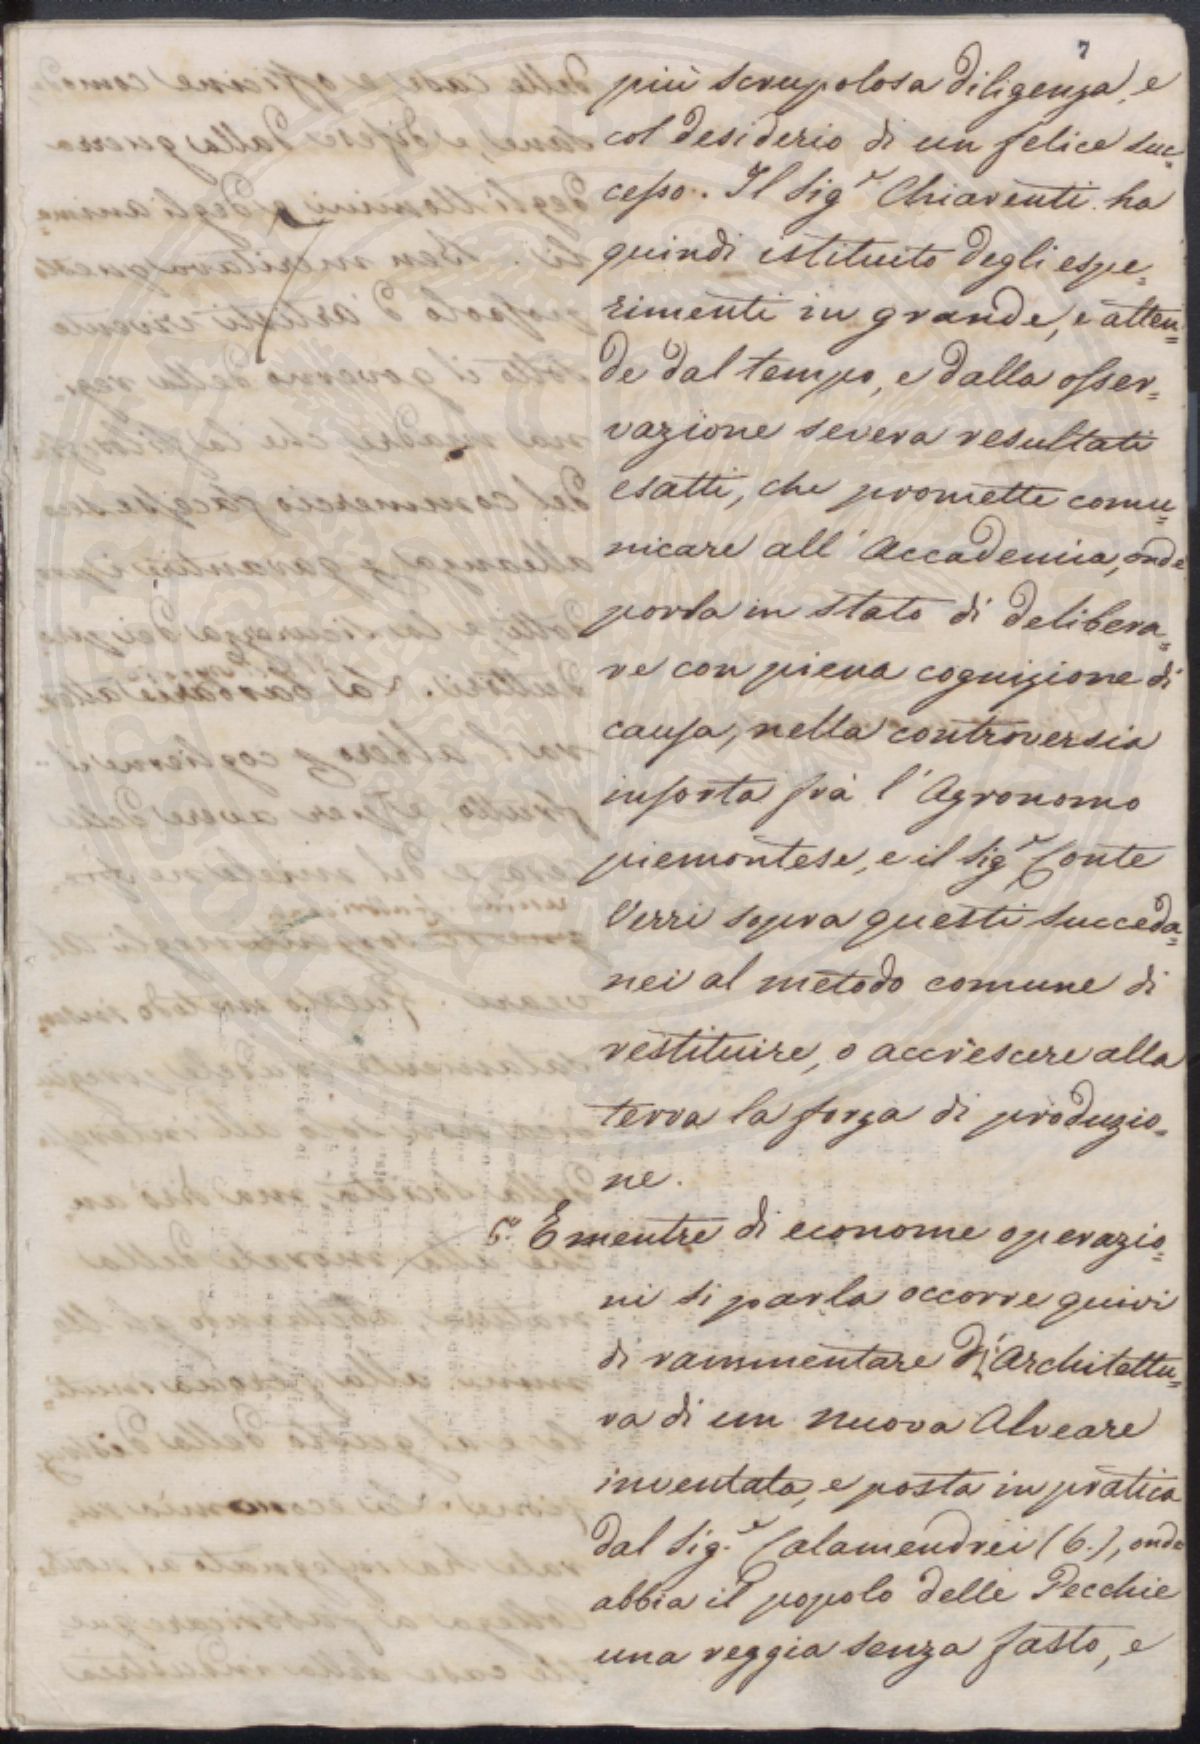 7
più scrupolosa diligenza, e
col desiderio di un felice suc=
cesso. Il Sig.r Chiarenti ha
quindi istituito degli espe=
rimenti in grande, e atten=
de dal tempo, e dalla osser=
vazione severa resultati
esatti, che promette comu=
nicare all'Accademia, onde
porla in stato di delibera=
re con piena cognizione di
causa, nella controversia
insorta frà l'Agronomo
piemontese, e il Sig.r Conte
Verri sopra questi succeda=
nei al metodo comune di
restituire, o accrescere alla
terra la forza di produzio=
ne.
5. E mentre di econome operazio=
ni si parla occorre quivi
di rammentare l'Architettu=
ra di un nuova Alveare
inventata, e posta in pratica
dal Sig.r Calamendrei (6.), onde
abbia il popolo delle Pecchie
una reggia senza fasto, e